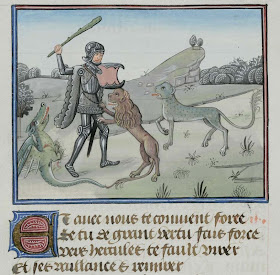 Et auec nous te conuient force
Se tu de grant vertu fais force
Vers hercules te fault virer
Et ses vaillances remirer